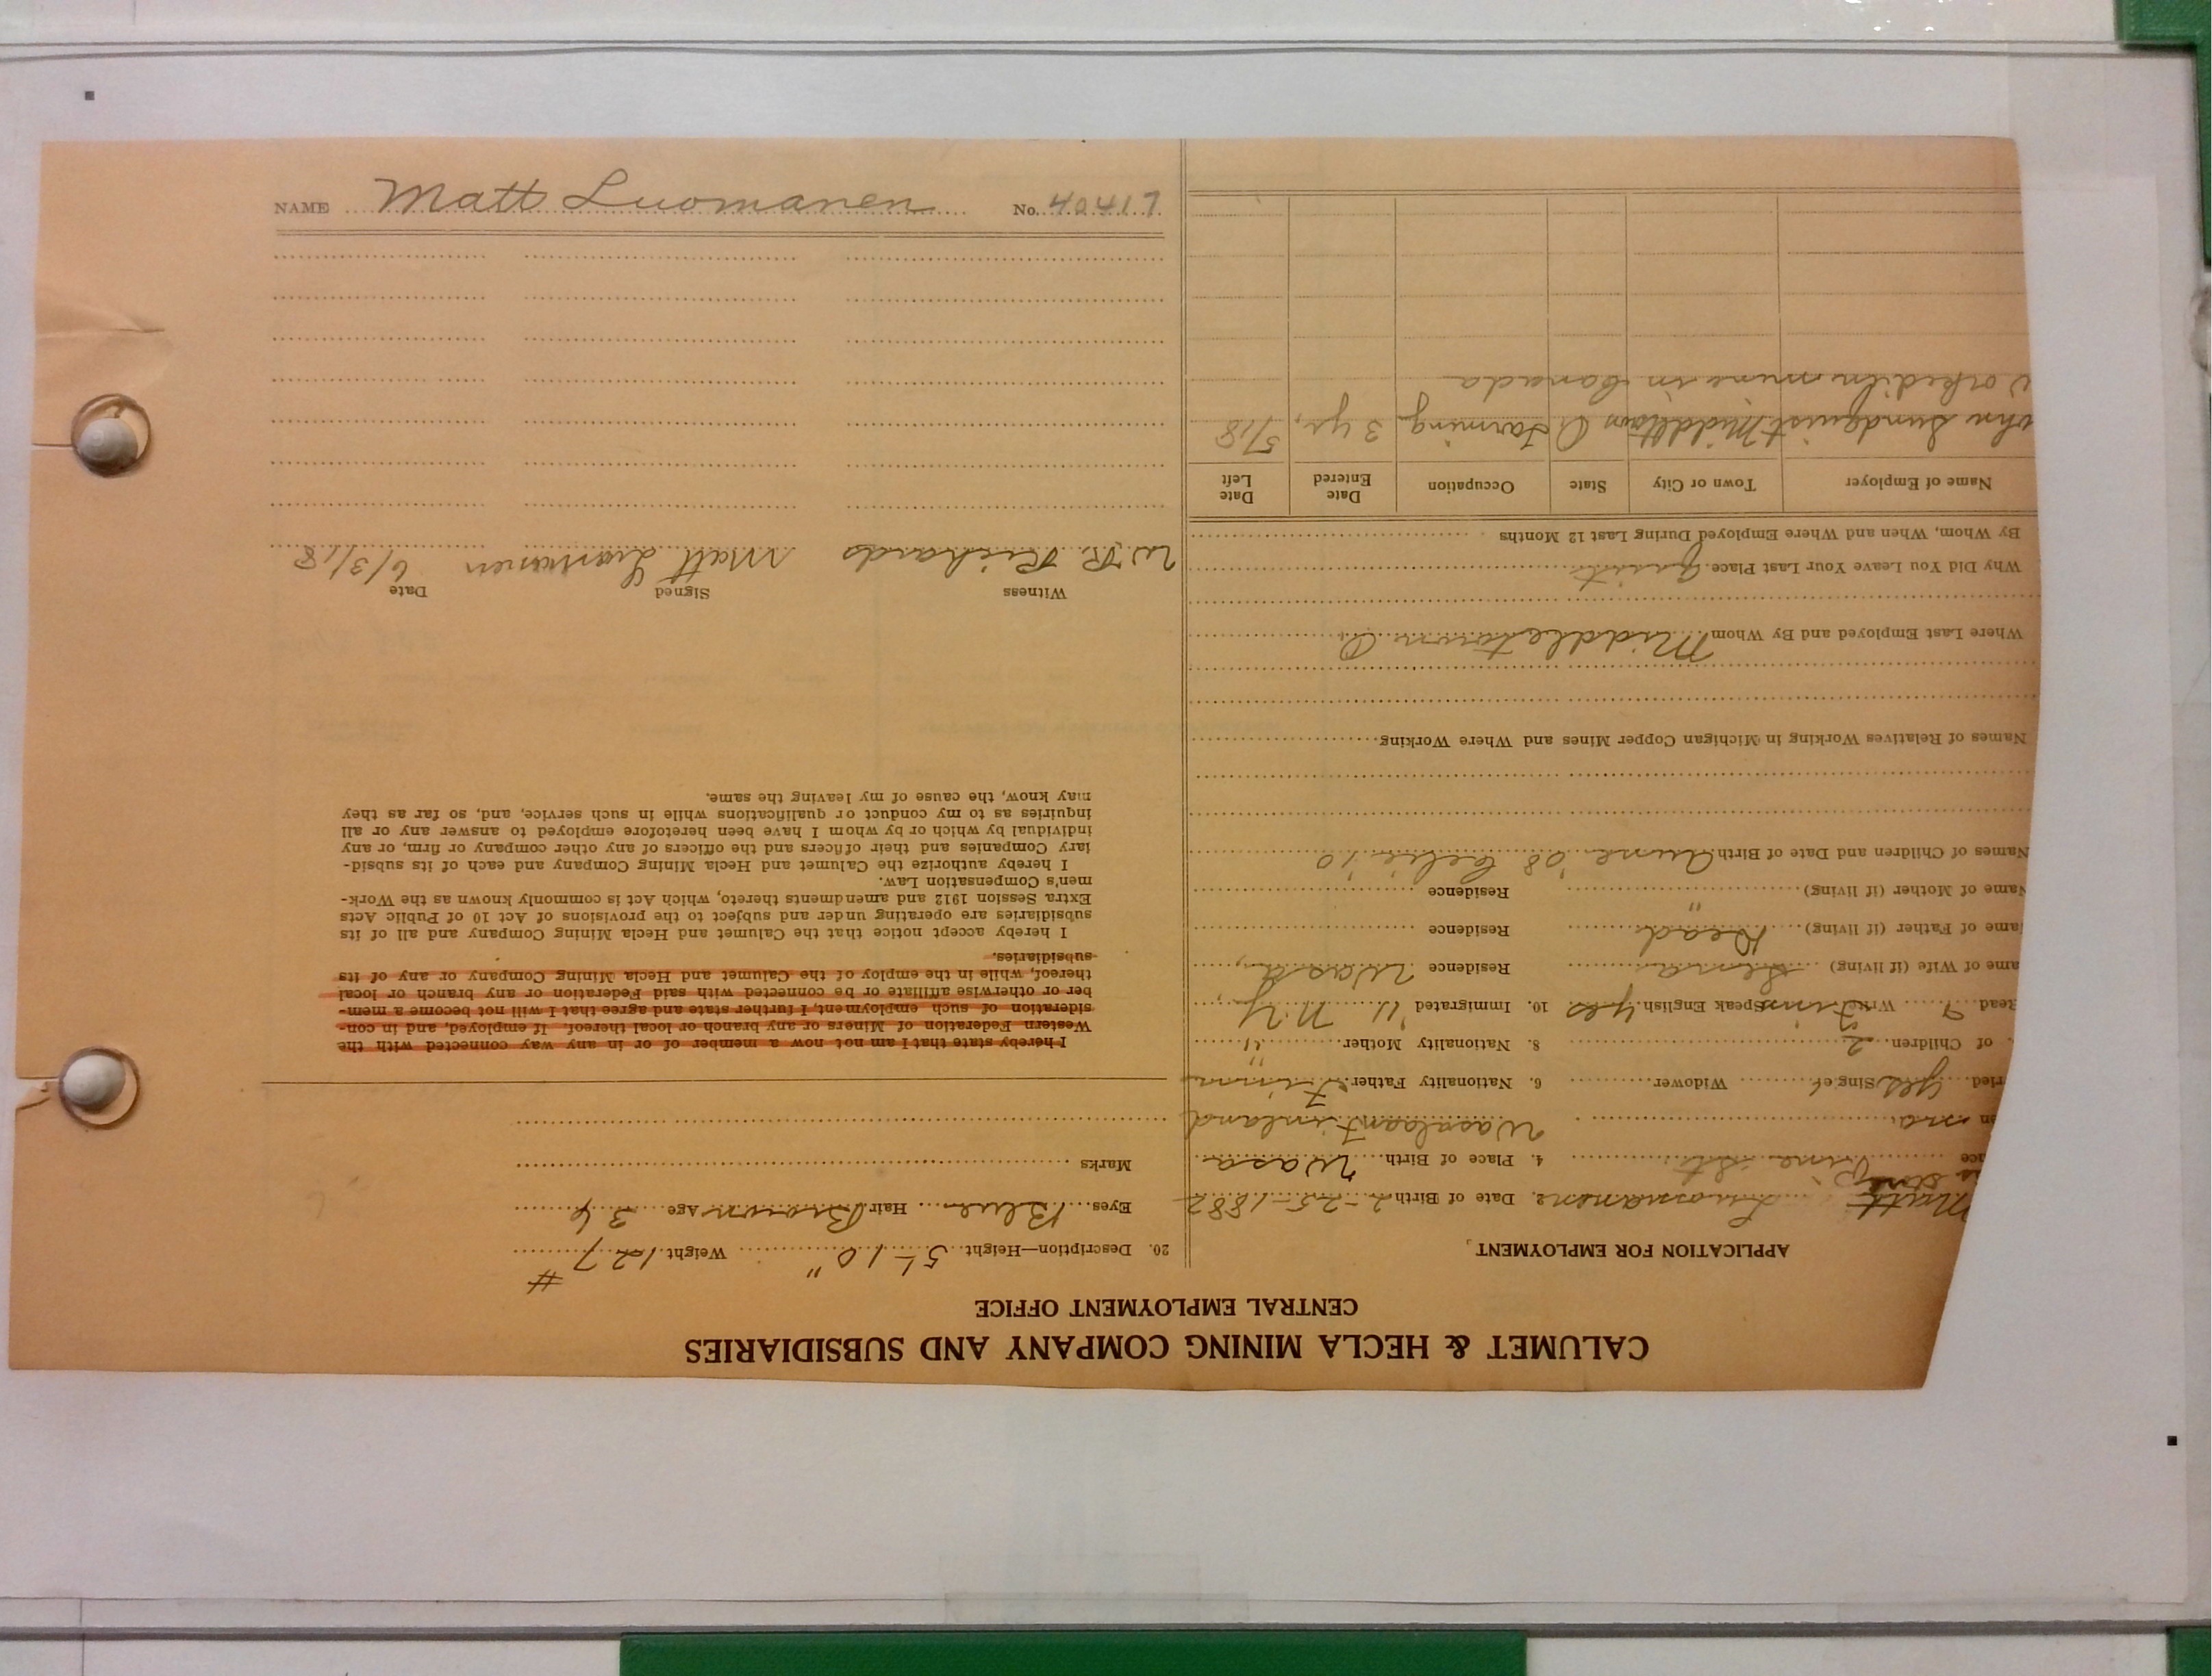 NAME Matt Luomanen No. 40417
CALUMET & HECLA MINING COMPANY AND SUBSIDIARIES
CENTRAL EMPLOYMENT OFFICE
APPLICATION FOR EMPLOYMENT
Matt Luomanen 2. Date of Birth 2-25-1882
Pine St. 4. Place of Birth Wasa
no Wasalaan Finland
yes Single Widower 6. Nationality Father Finn
of Children 2 8. Nationality Mother "
Read Write Finn Speak English yes 10. Immigrated '11 N.Y.
ame of Wife (if living) Residence Wasa
ame of Father (if living) Dead Residence
Name of Mother (if living) " Residence
Names of Children and Date of Birth Aune '08 '10
Names of Relatives Working in Michigan Copper Mines and Where Working
Where Last Employed and By Whom Middletown O.
Why Did You Leave Your Last Place quit
By Whom, When and Where Employed During Last 12 Months
Name of Employer Town or City State Occupation Date Entered Date Left
ohn Sundquist Middletown O Farming 3 yr. 5/18
Worked in mine in Canada
20. Description—Height 5'-10" Weight 127 #
Eyes Blue Hair Brown Age 36
Marks
I hereby state that I am not now a member of or in any way connected with the
Western Federation of Miners or any branch or local thereof. If employed, and in con-
sideration of such employment, I further state and agree that I will not become a mem-
ber or otherwise affiliate or be connected with said Federation or any branch or local
thereof, while in the employ of the Calumet and Hecla Mining Company or any of its
subsidiaries.
I hereby accept notice that the Calumet and Hecla Mining Company and all of its
subsidiaries are operating under and subject to the provisions of Act 10 of Public Acts
Extra Session 1912 and amendments thereto, which Act is commonly known as the Work-
men's Compensation Law.
I hereby authorize the Calumet and Hecla Mining Company and each of its subsid-
iary Companies and their officers and the officers of any other company or firm, or any
individual by which or by whom I have been heretofore employed to answer any or all
inquiries as to my conduct or qualifications while in such service, and, so far as they
may know, the cause of my leaving the same.
Witness Signed Date
W. R. Richards Matt Luomanen 6/3/18